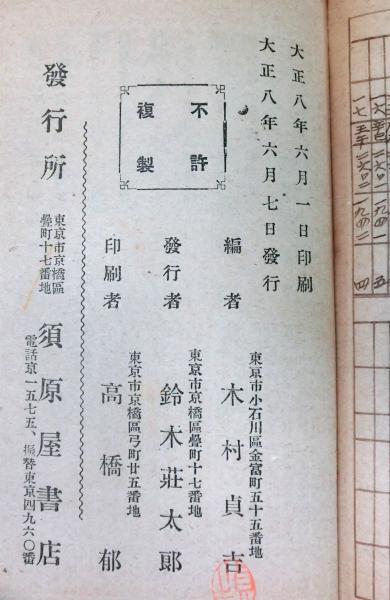 大正八年六月一日印刷
大正八年六月七日發行
不許
複製
編者
東京市小石川區金富町五十五番地
木村貞吉
發行者
東京市京橋區疊町十七番地
鈴木莊太郎
印刷者
東京市京橋區弓町廿五番地
高橋郁
發行所
東京市京橋區
疊町十七番地
須原屋書店
電話京一五七五、振替東京四九六〇番